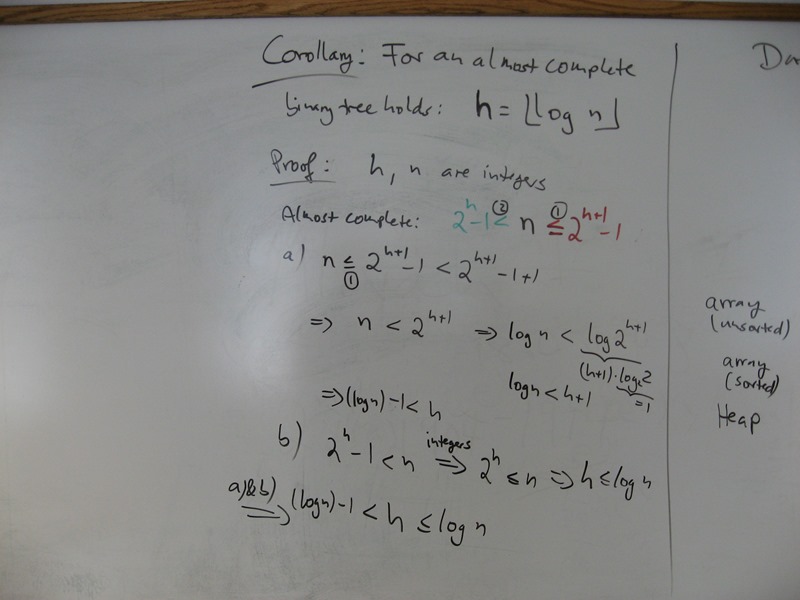 Corollary: For an almost complete
binary tree holds: h = ⌊log n⌋
Proof: h, n are integers
Almost complete: 2^h - 1 <② n ≤① 2^(h+1) - 1
a) n ≤① 2^(h+1) - 1 < 2^(h+1) - 1 + 1
⇒ n < 2^(h+1) ⇒ log n < log 2^(h+1)
(h+1)·log₂2
=1
log n < h+1
⇒ (log n) - 1 < h
b) 2^h - 1 < n integers ⇒ 2^h ≤ n ⇒ h ≤ log n
a)&b) ⇒ (log n) - 1 < h ≤ log n
array
(unsorted)
array
(sorted)
Heap